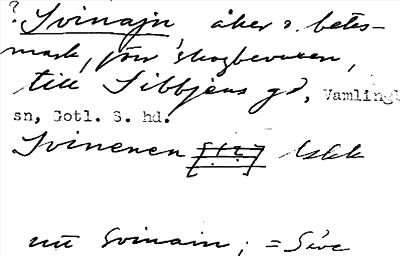 ? Svinajn, åker o. betes-
mark, förr skogbevuxen,
till Sibbjens gd, Vamlingb
sn, Gotl. S. hd.
Svinenen
nu Svinain; =